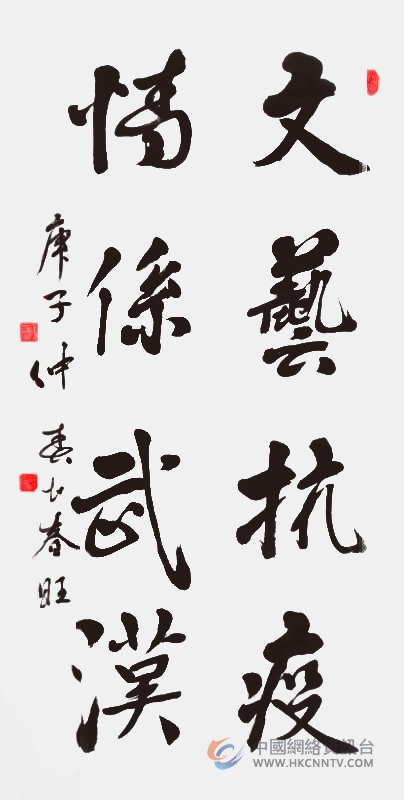 文藝抗疫
情係武漢
庚子仲春 春旺
中國網絡資訊台
WWW.HKCNNTV.COM